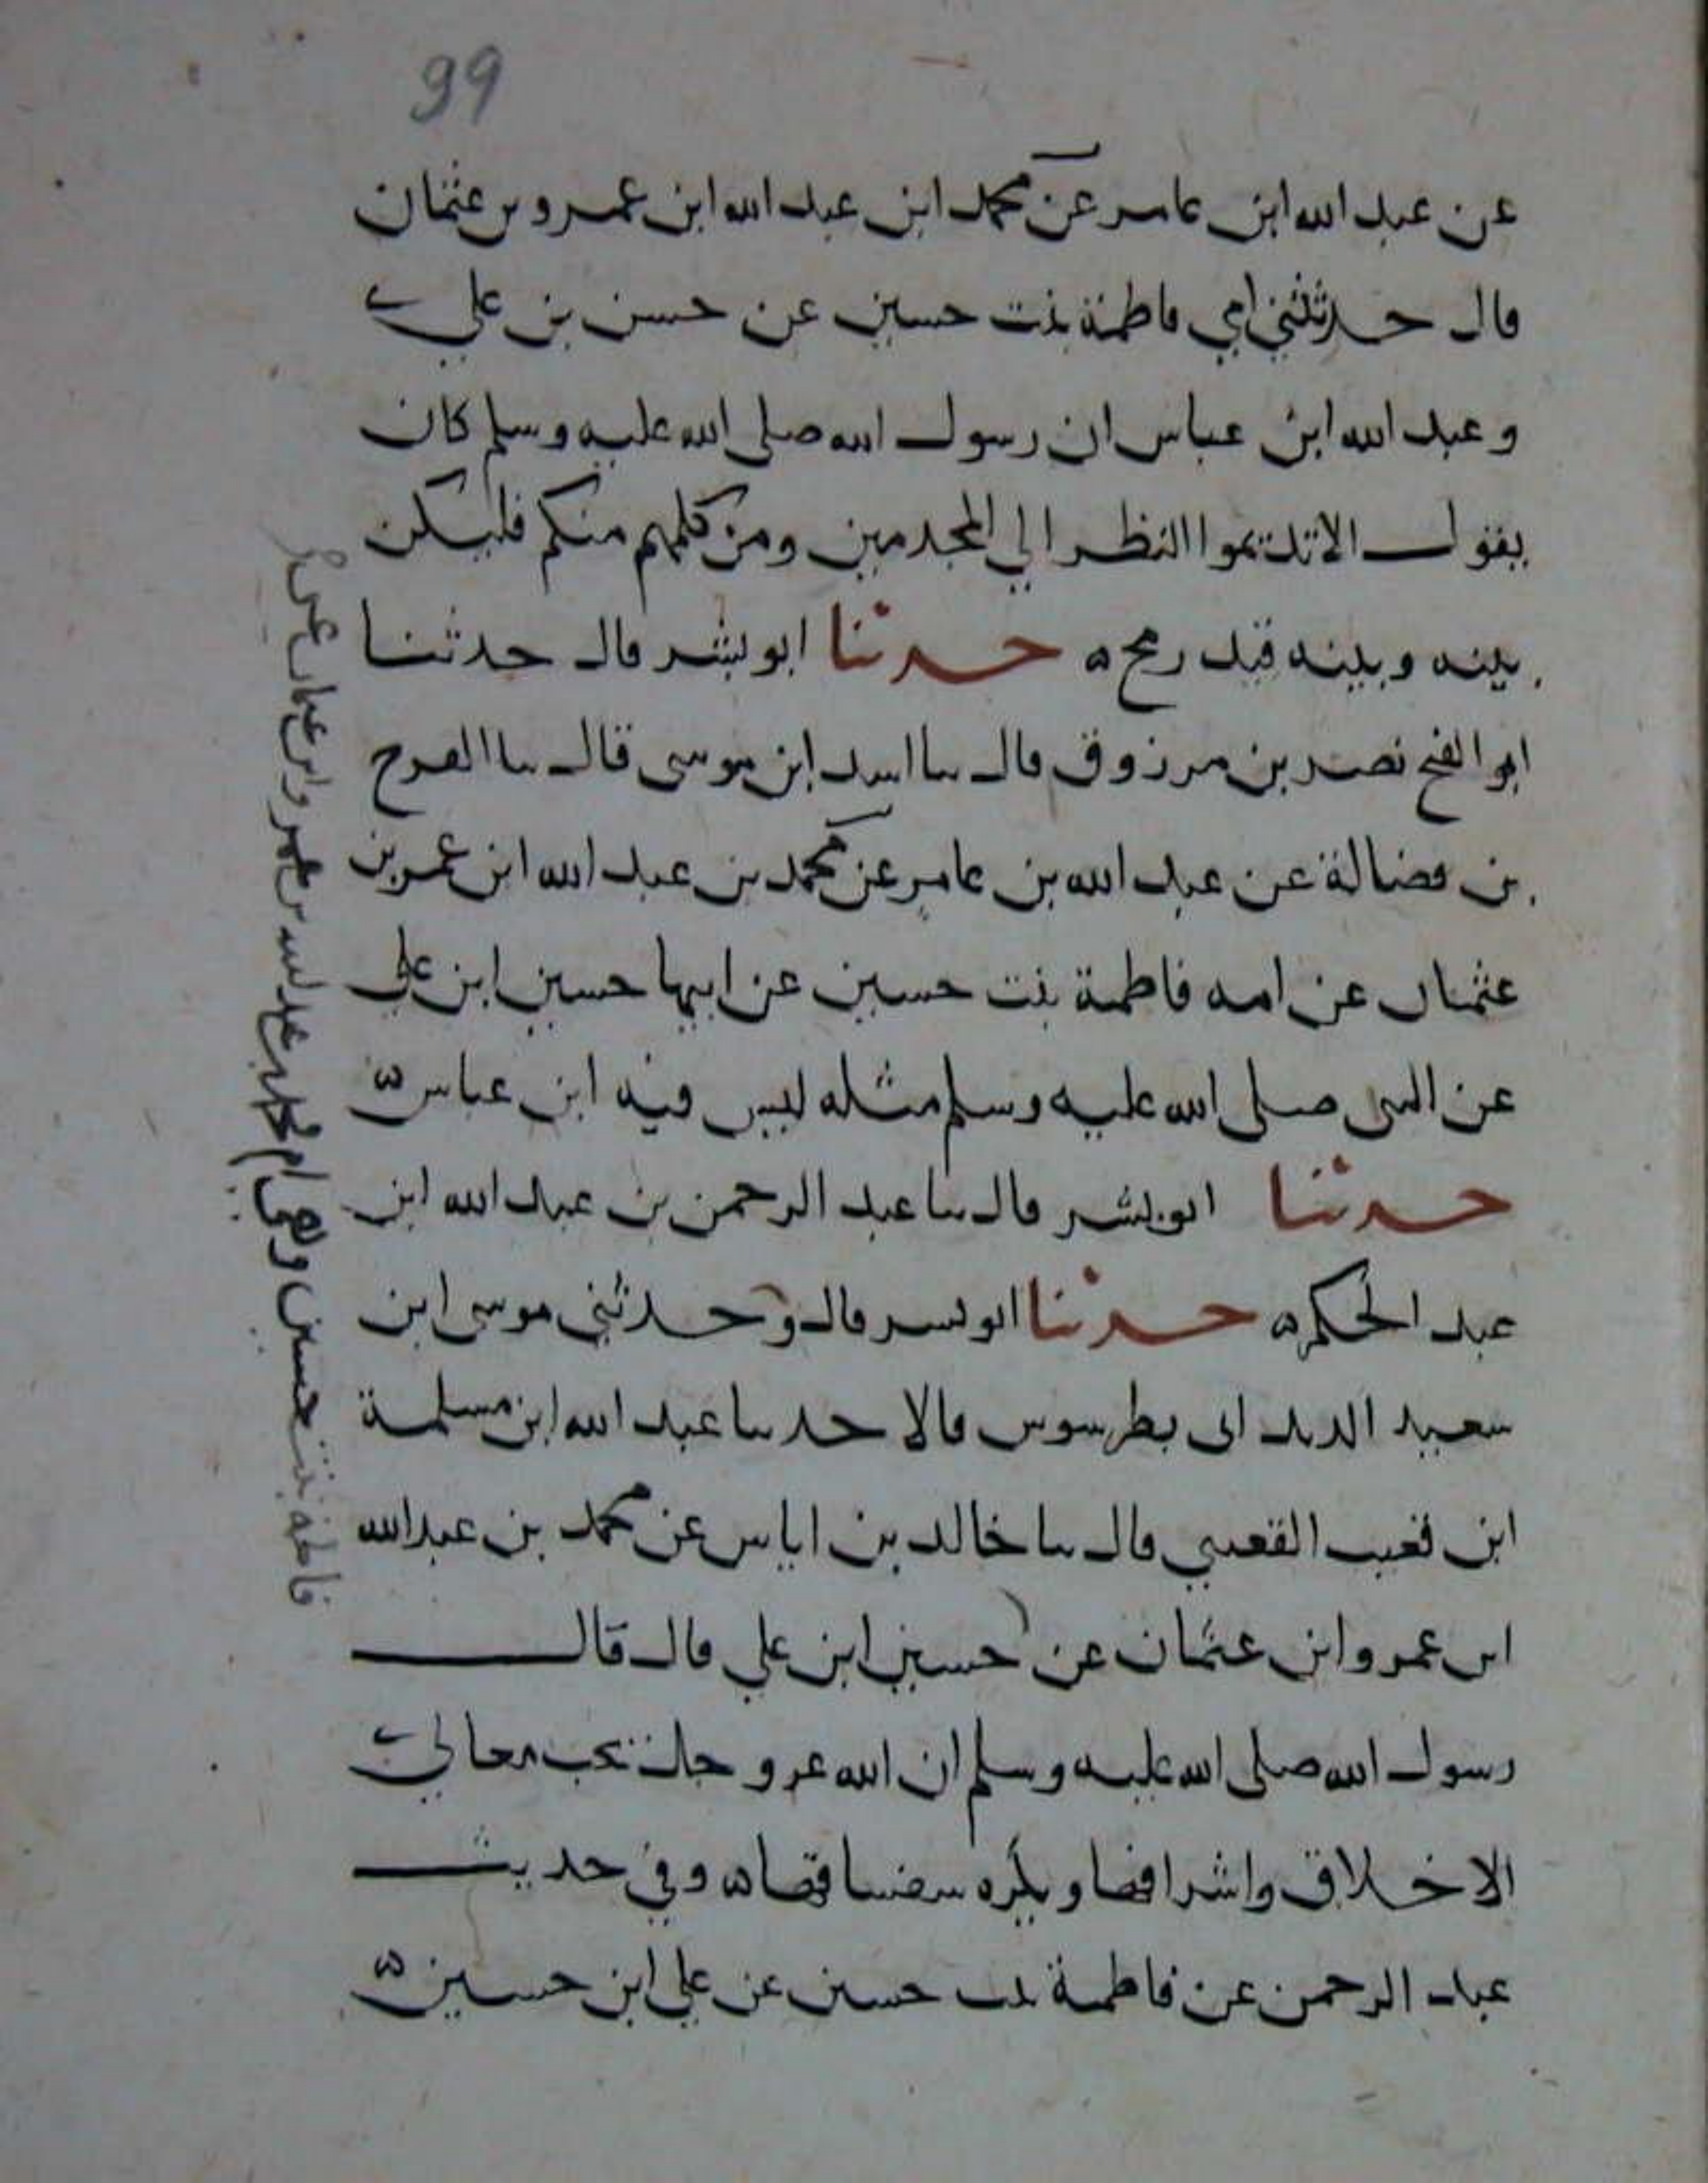 99
عن عبد الله ابن عامر عن محمد ابن عبد الله ابن عمرو بن عثمان
قال حدثتني امي فاطمة بنت حسين عن حسن بن علي
وعبد الله ابن عباس ان رسول الله صلى الله عليه وسلم كان
يقول الا تديموا النظر الي المجدمين ومن كلمهم منكم فليكن
بينه وبينه قيد رمح ه حدثنا ابو بشر قال حدثنا
ابو الفتح نصر بن مرزوق قال سا اسد ابن موسى قال سا الفرج
بن فضالة عن عبد الله بن عامر عن محمد بن عبد الله ابن عمر بن
عثمان عن امه فاطمة بنت حسين عن ابيها حسين ابن علي
عن النبي صلى الله عليه وسلم مثله ليس فيه ابن عباس ه
حدثنا ابو بشر قال سا عبد الرحمن بن عبد الله ابن
عبد الحكم ه حدثنا ابو بشر قال وحدثني موسى ابن
سعيد الدنداني بطرسوس قالا حدثنا عبد الله ابن مسلمة
ابن قعنب القعنبي قال سا خالد بن اياس عن محمد بن عبد الله
ابن عمرو ابن عثمان عن حسين ابن علي قال قال
رسول الله صلى الله عليه وسلم ان الله عز وجل يحب معالي
الاخلاق واشرافها ويكره سفسافها ه وفي حديث
عبد الرحمن عن فاطمة بنت حسين عن علي ابن حسين ه
فاطمة بنت حسين وهي ام محمد بن عبد الله بن عمرو ابن عثمان